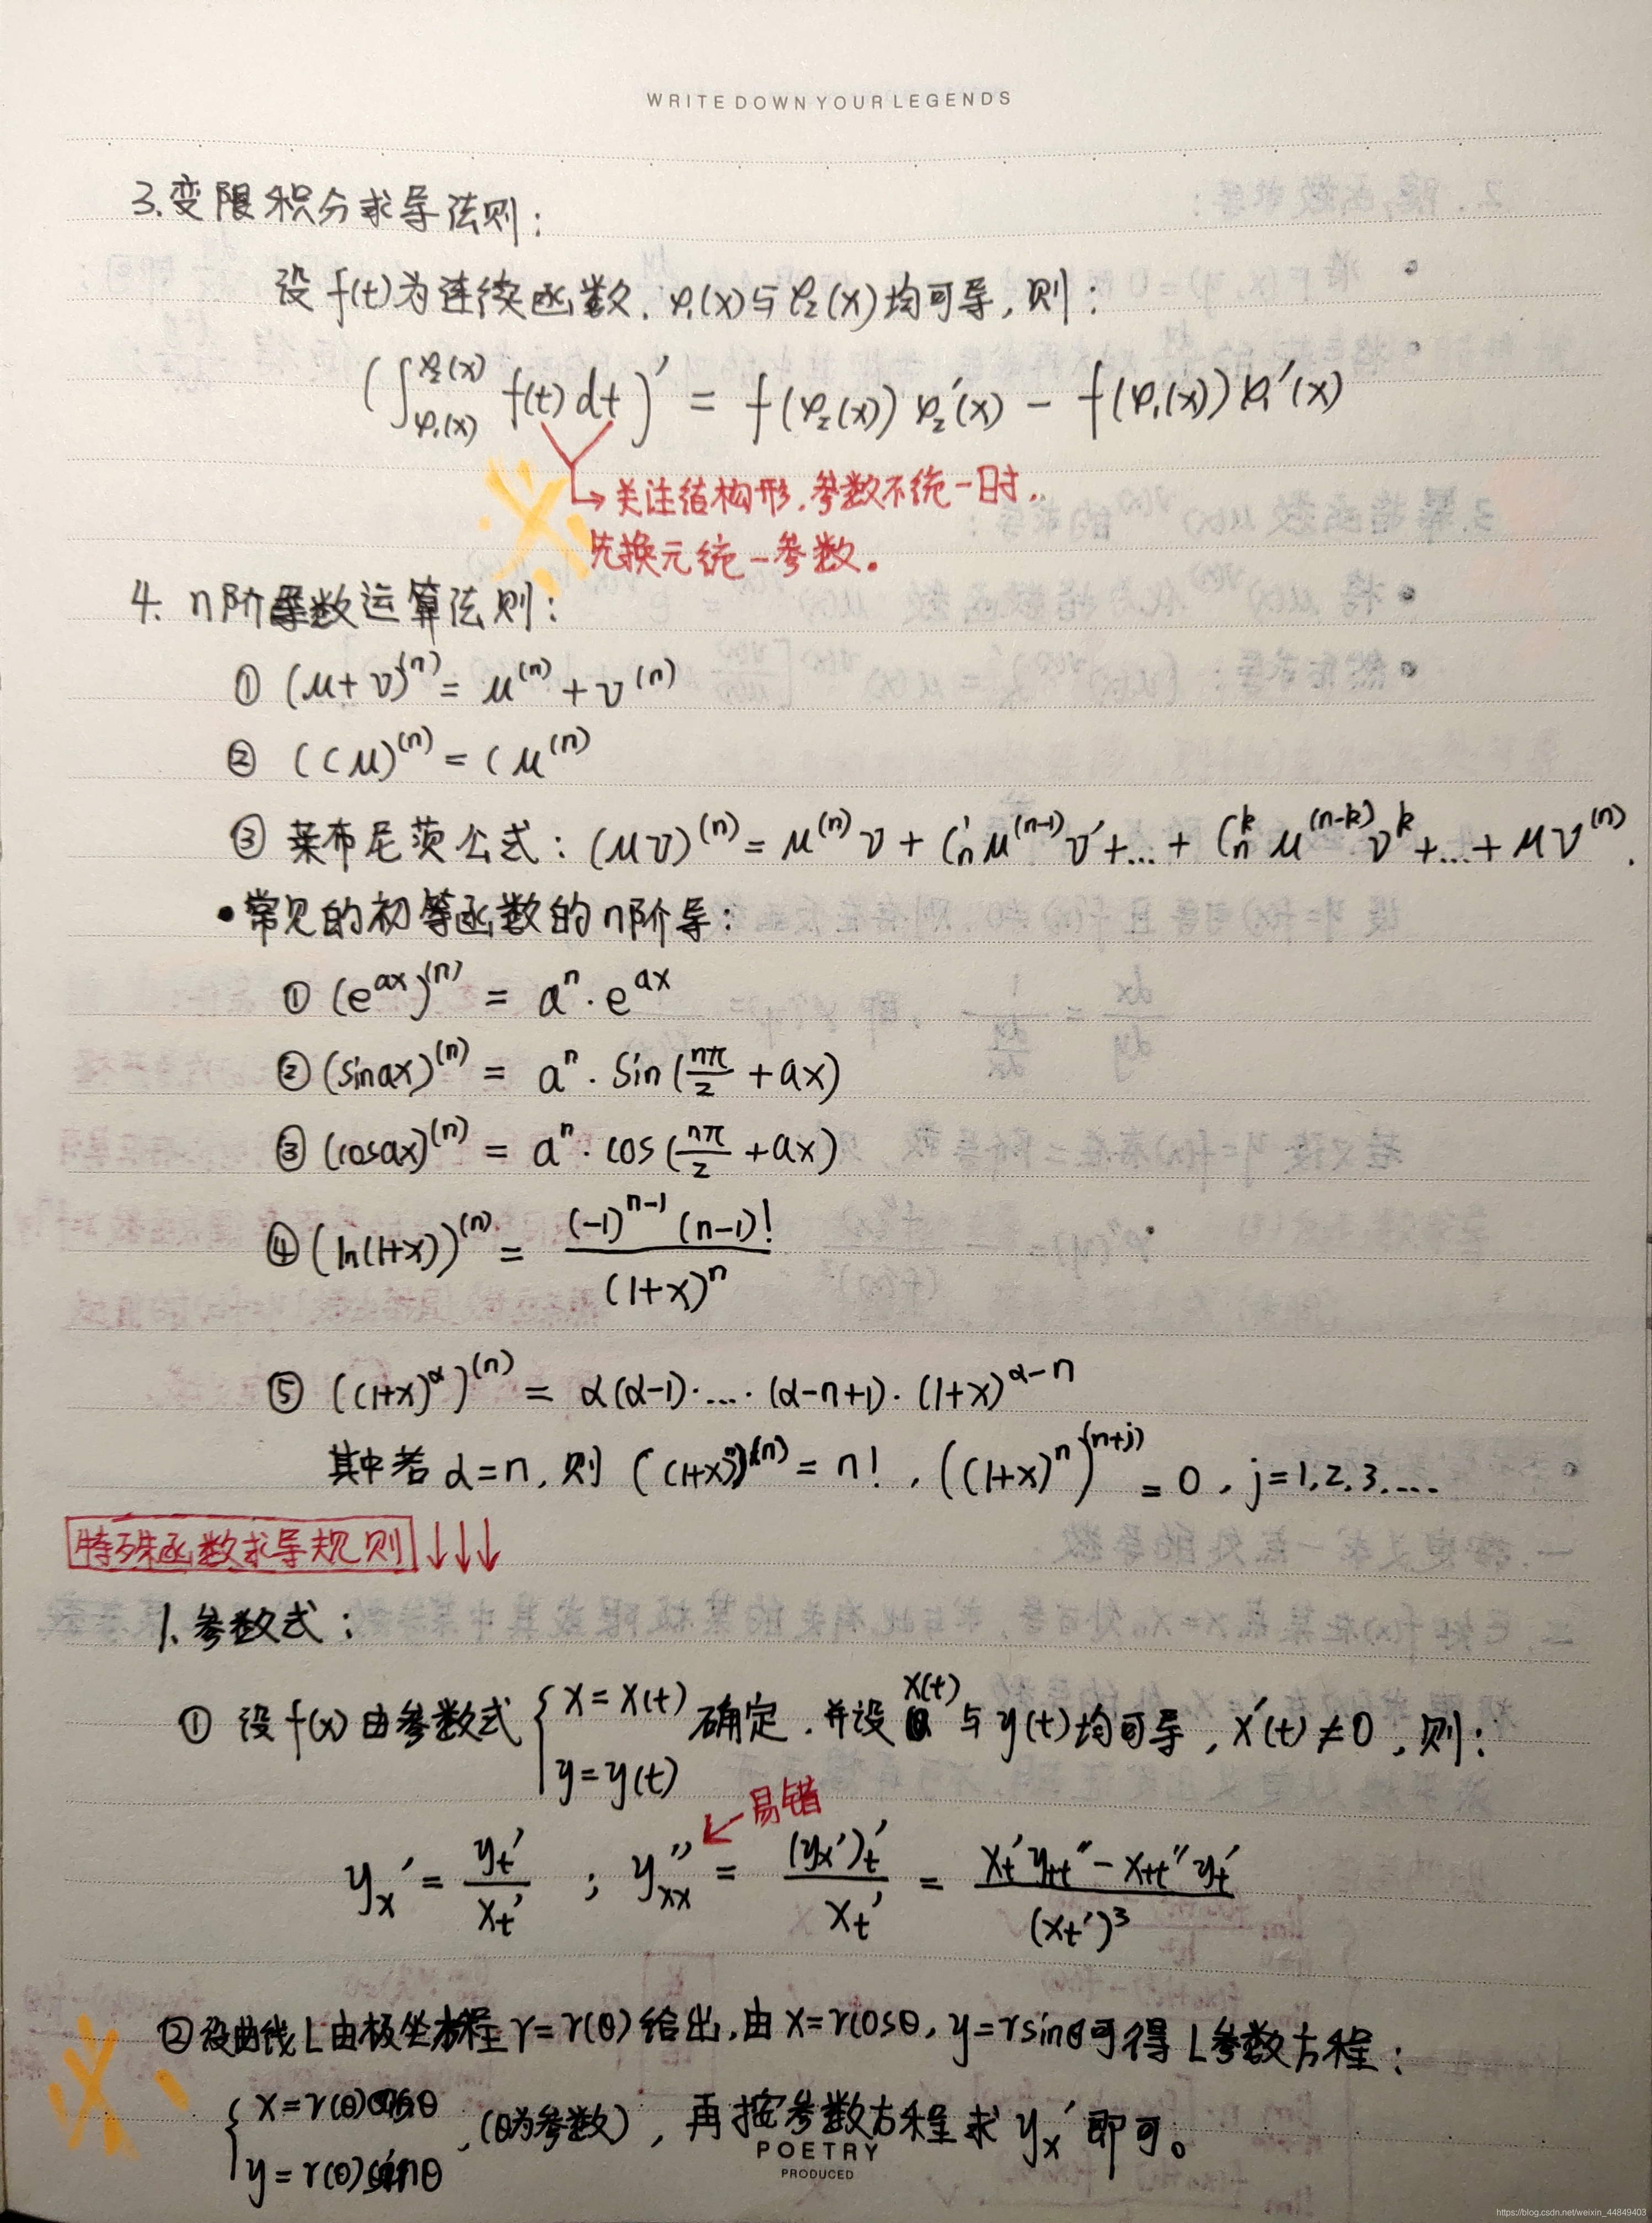 WRITE DOWN YOUR LEGENDS
3.变限积分求导法则:
设 f(t)为连续函数, φ₁(x)与 φ₂(x)均可导,则:
(∫_{φ₁(x)}^{φ₂(x)} f(t)dt)′ = f(φ₂(x))φ₂′(x) − f(φ₁(x))φ₁′(x)
→关注结构形,参数不统一时,
先换元统一参数。
4. n阶导数运算法则:
① (μ+v)^(n) = μ^(n) + v^(n)
② (Cμ)^(n) = Cμ^(n)
③ 莱布尼茨公式: (μv)^(n) = μ^(n)v + C_n^1 μ^(n-1)v′+...+ C_n^k μ^(n-k)v^k+...+ μv^(n).
•常见的初等函数的n阶导:
① (e^{ax})^(n) = a^n · e^{ax}
② (sinax)^(n) = a^n · sin(nπ/2 + ax)
③ (cosax)^(n) = a^n · cos(nπ/2 + ax)
④ (ln(1+x))^(n) = (-1)^{n-1}(n-1)! / (1+x)^n
⑤ ((1+x)^α)^(n) = α(α-1)·...·(α-n+1)·(1+x)^{α-n}
其中若 α=n,则 ((1+x)^n)^(n) = n!, ((1+x)^n)^(n+j) = 0, j=1,2,3....
特殊函数求导规则 ↓↓↓
1.参数式:
① 设 f(x)由参数式 { x=x(t) y=y(t) 确定,并设 x(t) 与 y(t)均可导, x′(t)≠0,则:
易错
y_x′ = y_t′/x_t′ ; y_xx″ = (y_x′)_t′/x_t′ = (x_t′y_tt″ − x_tt″y_t′)/(x_t′)³
②设曲线L由极坐标方程 r=r(θ)给出,由 x=rcosθ, y=rsinθ可得 L参数方程:
{ x=r(θ)cosθ y=r(θ)sinθ ,(θ为参数),再按参数方程求 y_x′ 即可。
POETRY
PRODUCED
https://blog.csdn.net/weixin_44849403